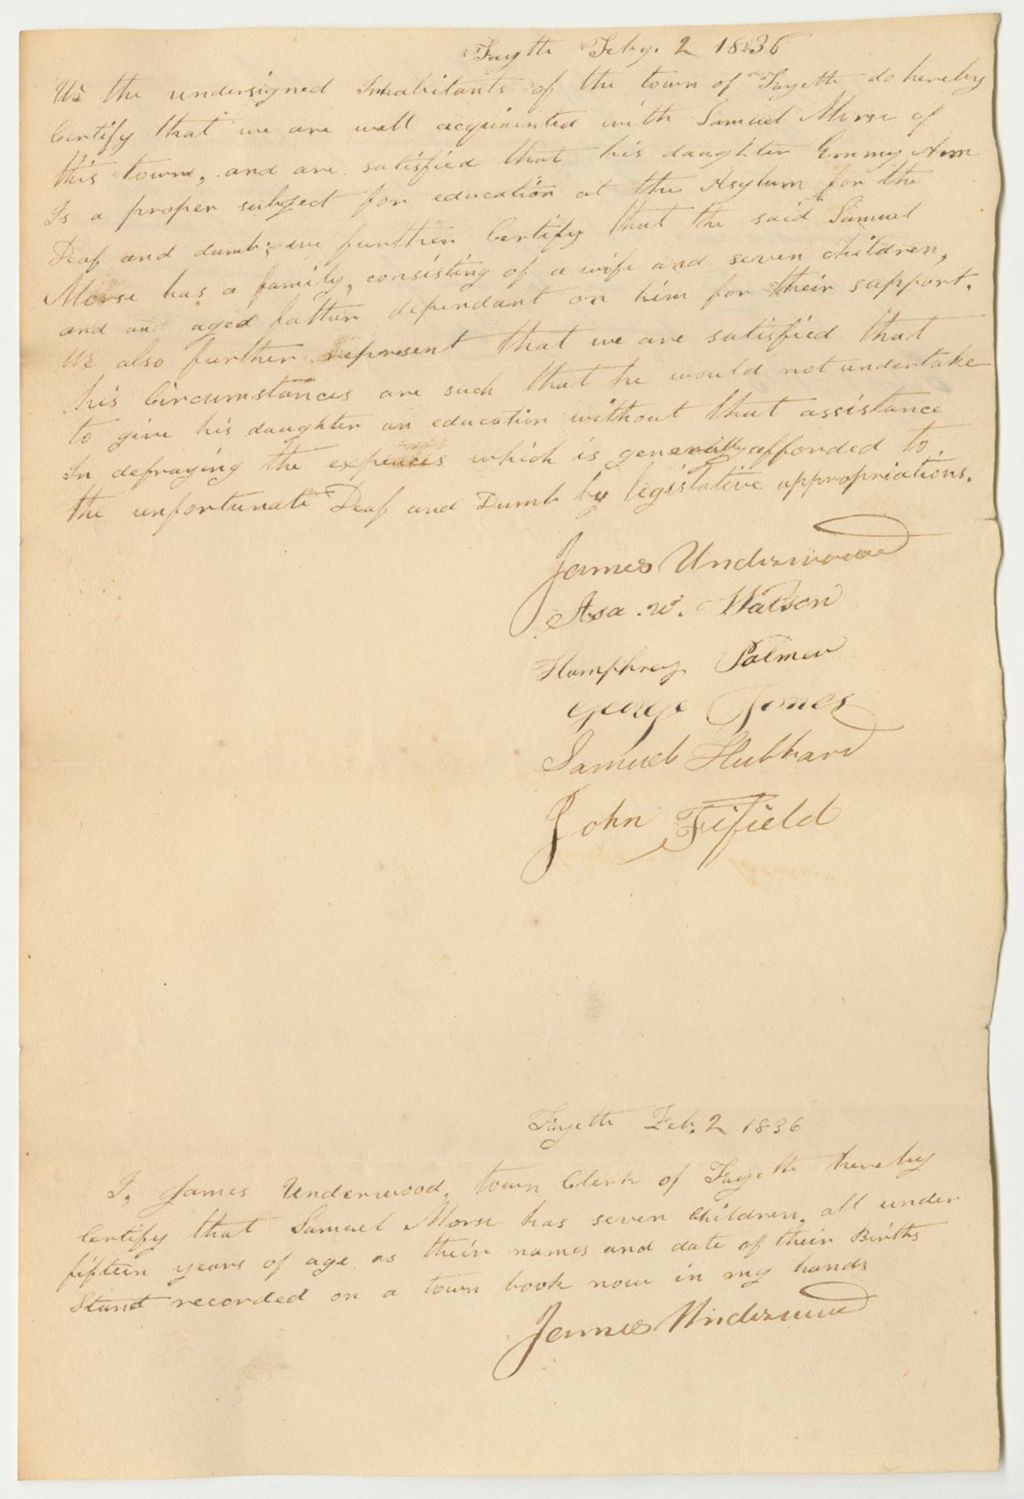 Fayette Feby. 2 1836
We the undersigned Inhabitants of the town of Fayette do hereby
Certify that we are well acquainted with Samuel Morse of
this town, and are satisfied that his daughter Emmy Ann
Is a proper subject for education at the Asylum for the
Deaf and dumb; we further Certify that the said Samuel
Morse has a family, consisting of a wife and seven children,
and an aged father dependant on him for their support.
We also further represent that we are satisfied that
his Circumstances are such that he would not undertake
to give his daughter an education without that assistance
In defraying the expences which is generally afforded to
the unfortunate Deaf and Dumb by legislative appropriations.
James Underwood
Asa . W. Watson
Humphrey Palmer
George Jones
Samuel Hubbard
John Fifield
Fayette Feb. 2 1836
I, James Underwood, town Clerk of Fayette hereby
Certify that Samuel Morse has seven Children, all under
fifteen years of age, as their names and date of their Births
Stand recorded on a town book now in my hands
James Underwood